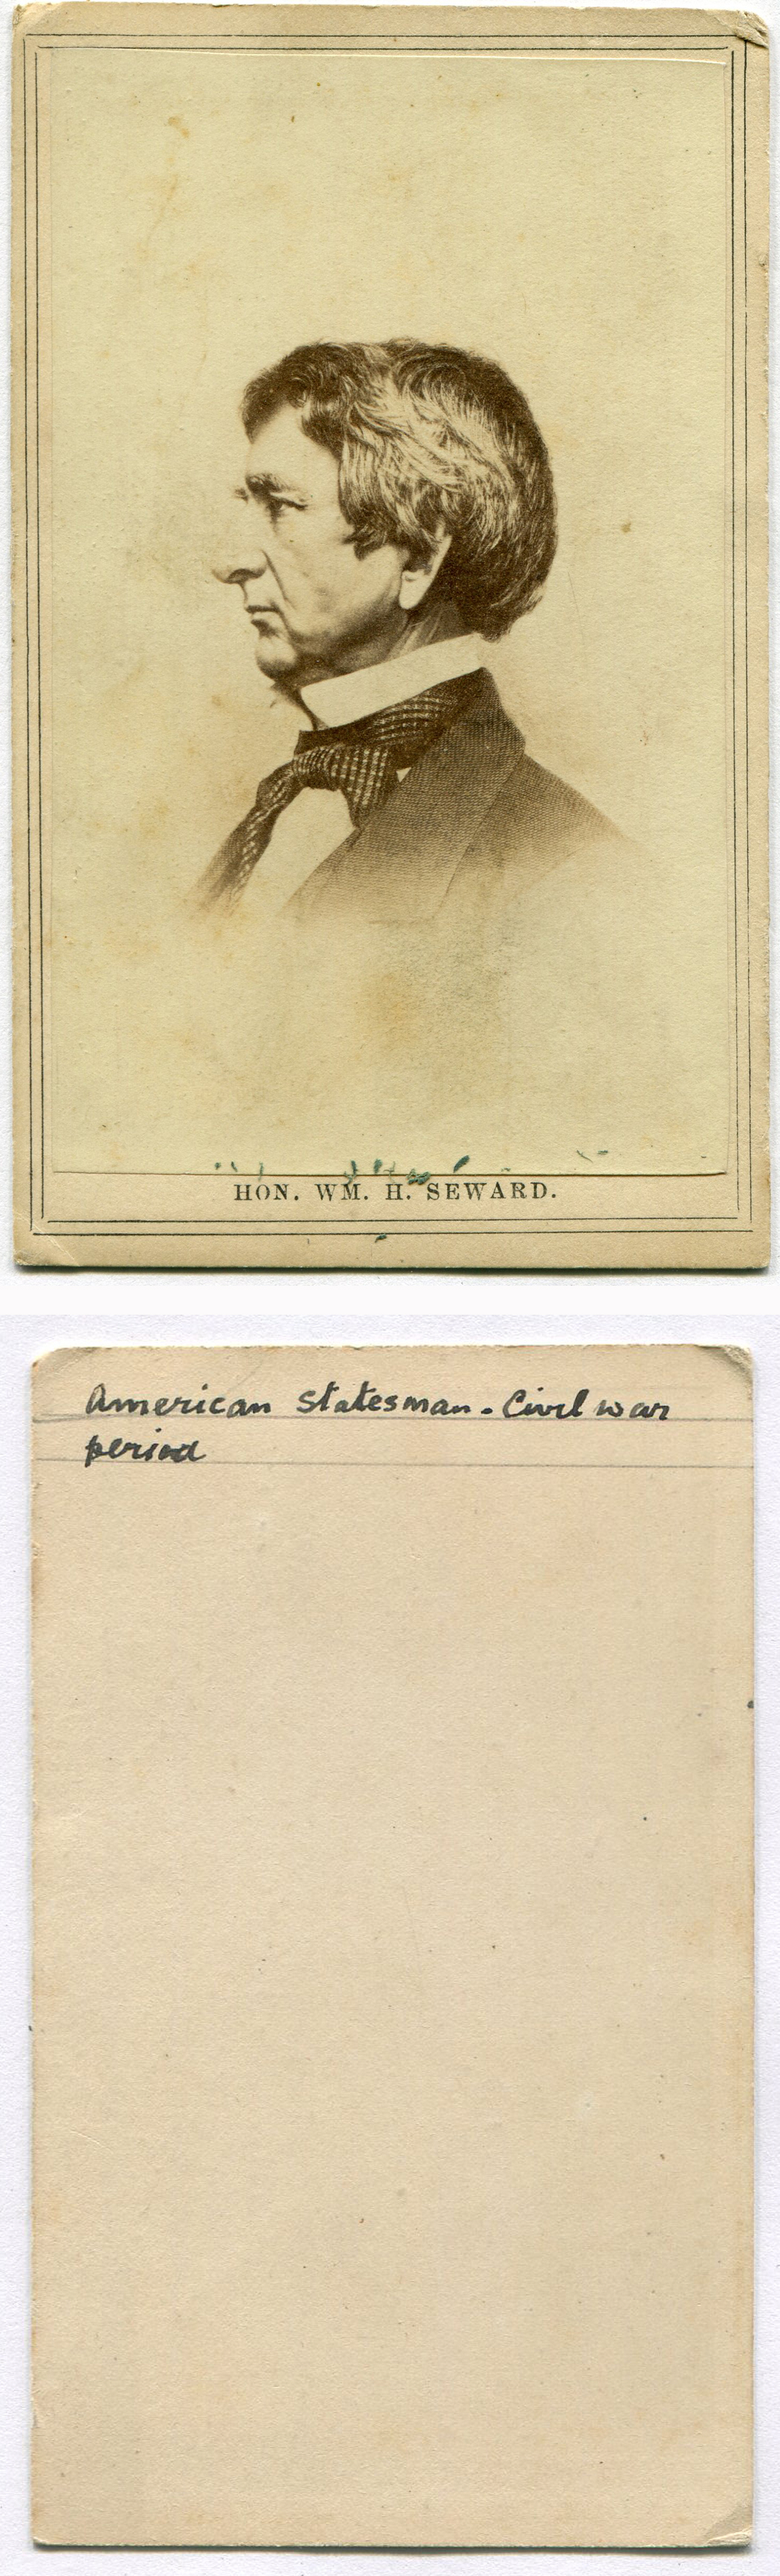 HON. WM. H. SEWARD.
American Statesman - Civil war
period